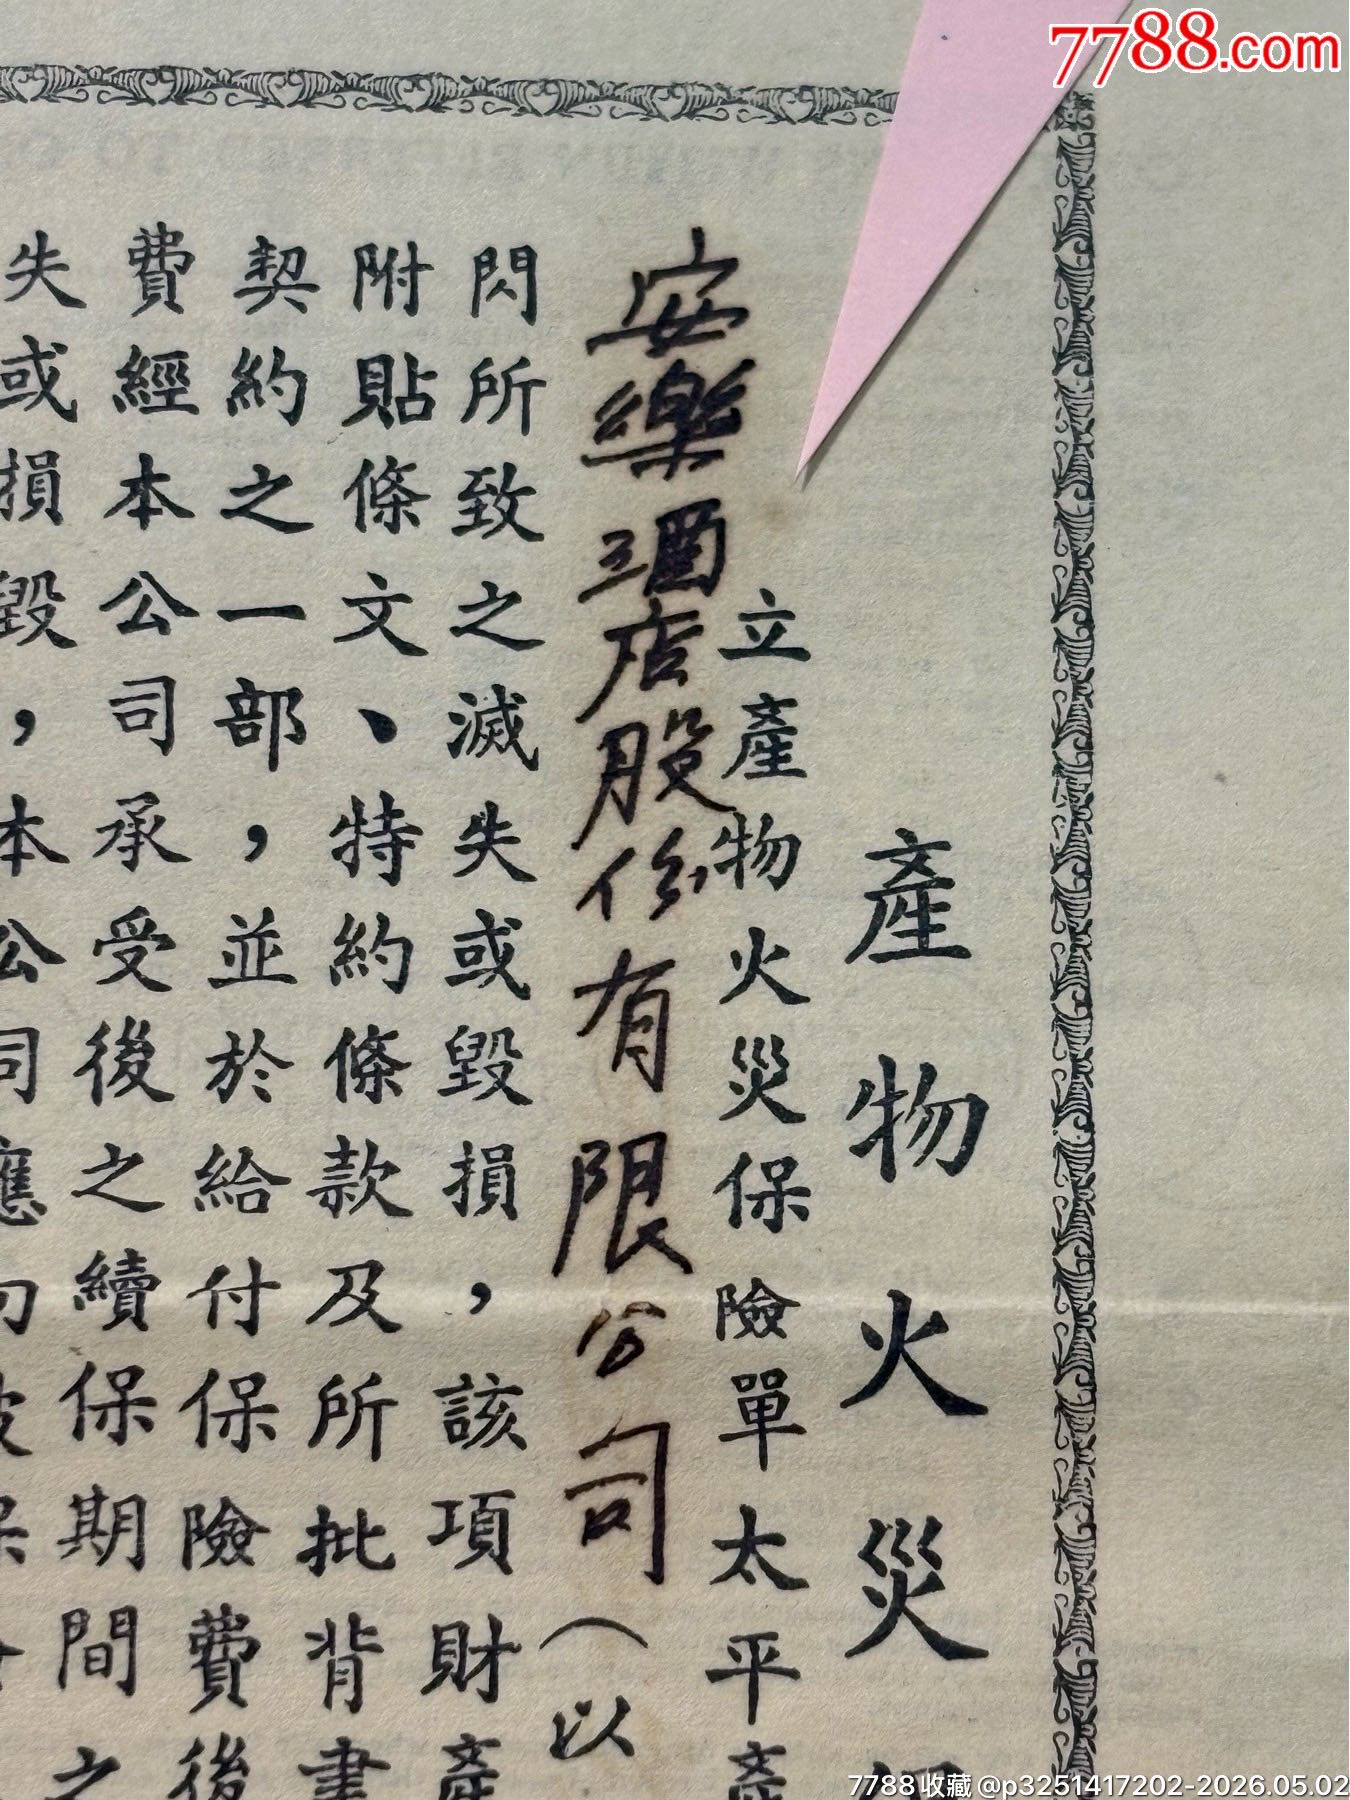 7788.com
產物火災
立產物火災保險單太平產
安樂酒店股份有限公司（以
閃所致之滅失或毀損，該項財產
附貼條文、特約條款及所批背書
契約之一部，並於給付保險費後
費經本公司承受後之續保期間之
失或損毀，本公司應
7788收藏@p3251417202-2026.05.02